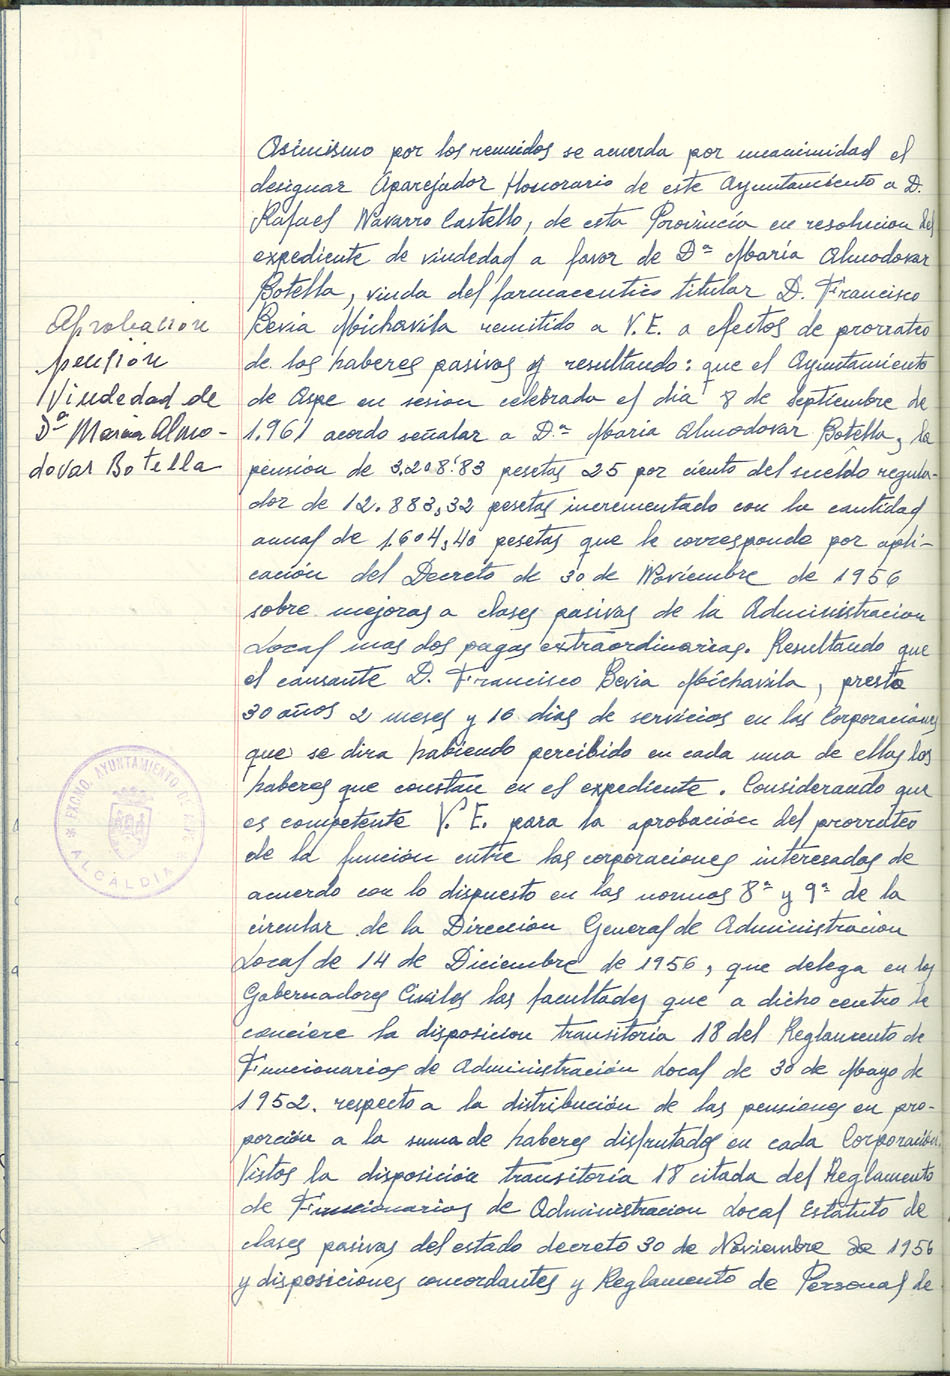 Asimismo por los reunidos se acuerda por unanimidad el
designar Aparejador Honorario de este Ayuntamiento a D.
Rafael Navarro Castello, de esta Provincia en resolucion del
expediente de viudedad a favor de Dª María Almodovar
Botella, viuda del farmaceutico titular D. Francisco
Bevia Michavila remitido a V.E. a efectos de prorrateo
de los haberes pasivos y resultando: que el Ayuntamiento
de Aspe en sesion celebrada el dia 8 de septiembre de
1.961 acordo señalar a Dª Maria Almodovar Botella, la
pensión de 3.208'83 pesetas 25 por ciento del sueldo regula-
dor de 12.883,32 pesetas incrementado con la cantidad
anual de 1.604,40 pesetas que le corresponde por apli-
cación del Decreto de 30 de Noviembre de 1956
sobre mejoras a clases pasivas de la Administracion
Local mas dos pagas extraordinarias. Resultando que
el causante D. Francisco Bevia Michavila, presto
30 años 2 meses y 16 dias de servicios en las Corporaciones
que se dira habiendo percibido en cada una de ellas los
haberes que constan en el expediente. Considerando que
es competente V. E. para la aprobación del prorrateo
de la función entre las corporaciones interesadas de
acuerdo con lo dispuesto en las normas 8ª y 9ª de la
circular de la Dirección General de Administracion
Local de 14 de Diciembre de 1956, que delega en los
Gobernadores Civiles las facultades que a dicho centro le
conciere la disposicion transitoria 18 del Reglamento de
Funcionarios de Administración Local de 30 de Mayo de
1952. respecto a la distribución de las pensiones en pro-
porción a la suma de haberes disfrutados en cada Corporación.
Vistos la disposición transitoría 18 citada del Reglamento
de Funcionarios de Administracion Local Estatuto de
clases pasivas del estado decreto 30 de Noviembre de 1956
y disposiciones concordantes y Reglamento de Personal de
Aprobación
pensión
Viudedad de
Dª Maria Almo-
dovar Botella
EXCMO. AYUNTAMIENTO DE ASPE
ALCALDIA